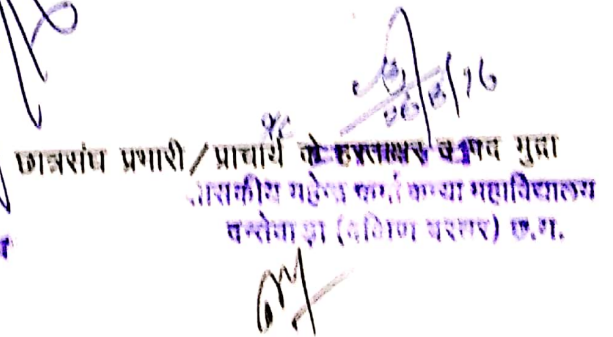 छात्रसंघ प्रभारी / प्राचार्य के हस्ताक्षर व पद मुद्रा
शासकीय महेन्द्र कर्मा कन्या महाविद्यालय
दन्तेवाड़ा (दक्षिण बस्तर) छ.ग.